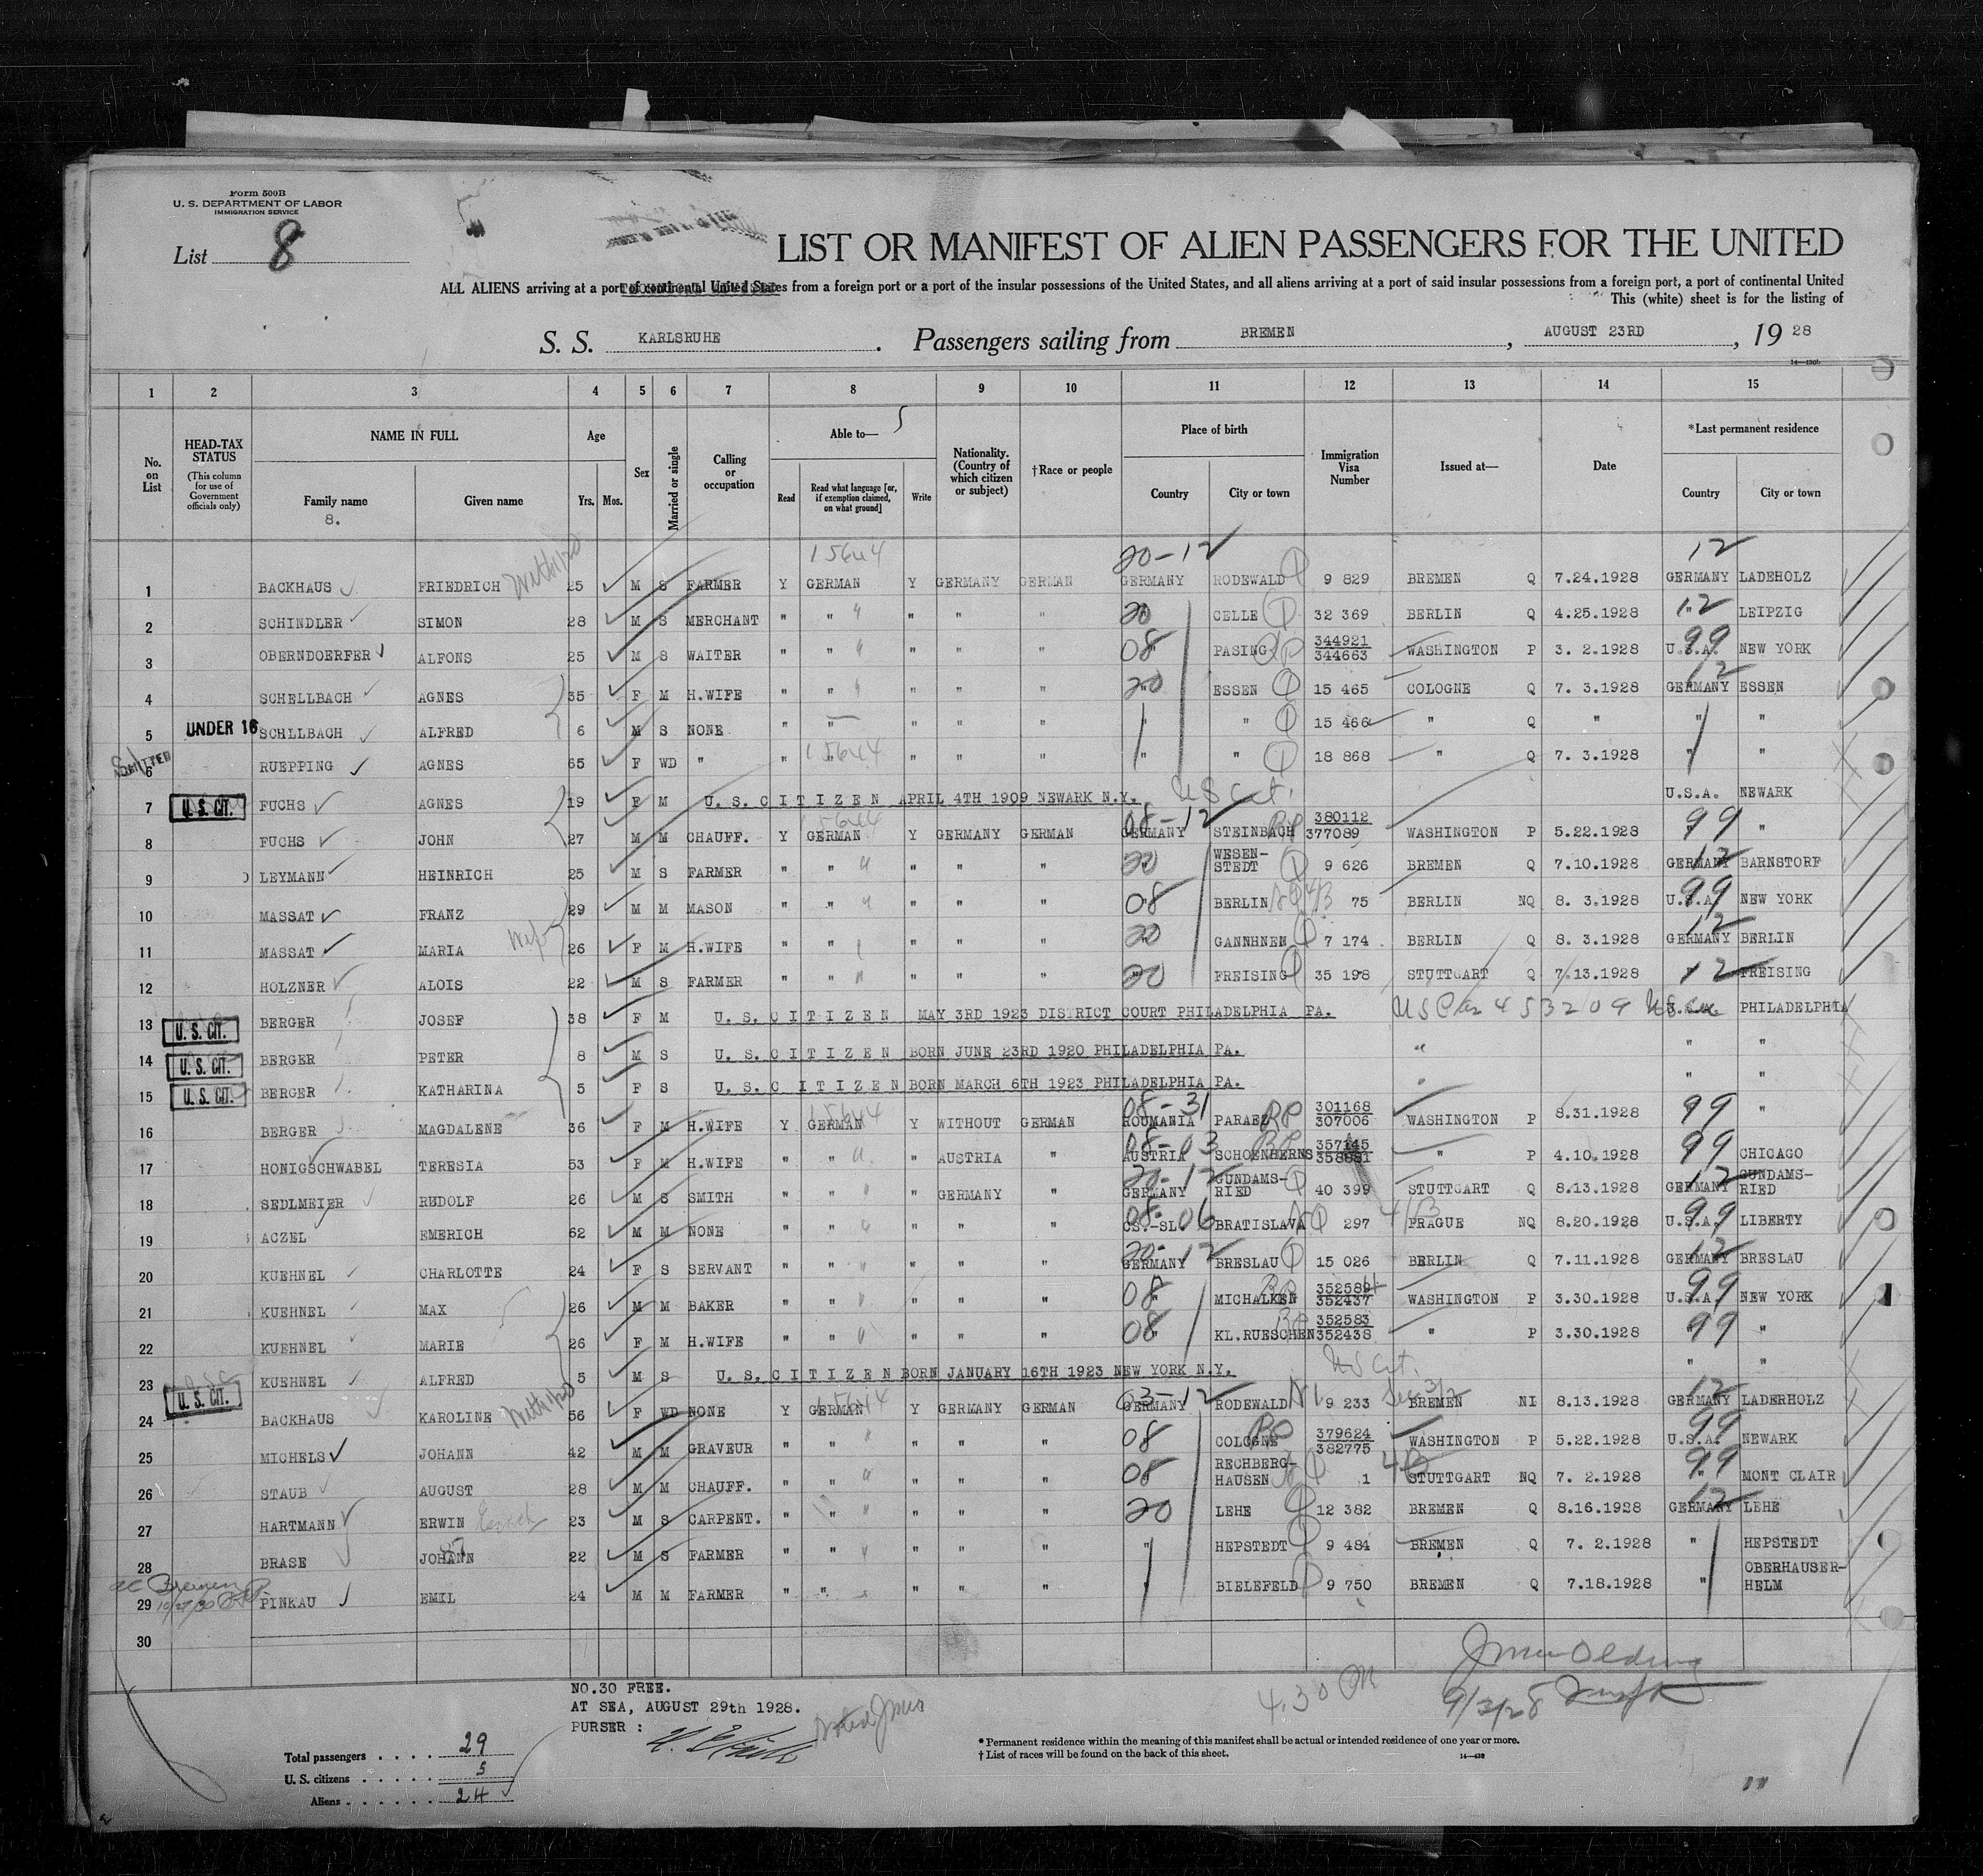 Form 500B
U. S. DEPARTMENT OF LABOR
IMMIGRATION SERVICE
List 8
LIST OR MANIFEST OF ALIEN PASSENGERS FOR THE UNITED
ALL ALIENS arriving at a port of continental United States from a foreign port or a port of the insular possessions of the United States, and all aliens arriving at a port of said insular possessions from a foreign port, a port of continental United
This (white) sheet is for the listing of
S. S. KARLSRUHE . Passengers sailing from BREMEN , AUGUST 23RD , 19 28
1 2 3 4 5 6 7 8 9 10 11 12 13 14 15
No. on List
HEAD-TAX STATUS (This column for use of Government officials only)
NAME IN FULL Family name Given name
8.
Age Yrs. Mos.
Sex
Married or single
Calling or occupation
Able to— Read Read what language [or, if exemption claimed, on what ground] Write
Nationality. (Country of which citizen or subject)
†Race or people
Place of birth Country City or town
Immigration Visa Number
Issued at—
Date
*Last permanent residence Country City or town
15644 20-12 12
1 BACKHAUS FRIEDRICH 25 M S FARMER Y GERMAN Y GERMANY GERMAN GERMANY RODEWALD 9 829 BREMEN Q 7.24.1928 GERMANY LADEHOLZ
2 SCHINDLER SIMON 28 M S MERCHANT " " " " " 20 CELLE 32 369 BERLIN Q 4.25.1928 " 12 LEIPZIG
3 OBERNDOERFER ALFONS 25 M S WAITER " " " " " 08 PASING 344921 344663 WASHINGTON P 3. 2.1928 U.S.A. 99 NEW YORK
4 SCHELLBACH AGNES 35 F M H.WIFE " " " " " 20 ESSEN 15 465 COLOGNE Q 7. 3.1928 GERMANY 12 ESSEN
5 UNDER 16 SCHLLBACH ALFRED 6 M S NONE " " " " " " " 15 466 " Q " " "
6 RUEPPING AGNES 65 F WD " " 15644 " " " " " 18 868 " Q 7. 3.1928 " "
7 U. S. CIT. FUCHS AGNES 19 F M U. S. C I T I Z E N APRIL 4TH 1909 NEWARK N.Y. US Cit. U.S.A. NEWARK
8 FUCHS JOHN 27 M M CHAUFF. Y GERMAN Y GERMANY GERMAN 08-12 GERMANY STEINBACH 380112 377089 WASHINGTON P 5.22.1928 " 99 "
9 LEYMANN HEINRICH 25 M S FARMER " " " " " 20 WESEN-STEDT 9 626 BREMEN Q 7.10.1928 GERMANY 12 BARNSTORF
10 MASSAT FRANZ 29 M M MASON " " " " " 08 BERLIN 75 BERLIN NQ 8. 3.1928 U.S.A. 99 NEW YORK
11 MASSAT MARIA 26 F M H.WIFE " " " " " 20 GANNHNEN 7 174 BERLIN Q 8. 3.1928 GERMANY 12 BERLIN
12 HOLZNER ALOIS 22 M S FARMER " " " " " 20 FREISING 35 198 STUTTGART Q 7.13.1928 " 12 FREISING
13 U. S. CIT. BERGER JOSEF 38 F M U. S. C I T I Z E N MAY 3RD 1923 DISTRICT COURT PHILADELPHIA PA. 453209 PHILADELPHIA
14 U. S. CIT. BERGER PETER 8 M S U. S. C I T I Z E N BORN JUNE 23RD 1920 PHILADELPHIA PA. " " "
15 U. S. CIT. BERGER KATHARINA 5 F S U. S. C I T I Z E N BORN MARCH 6TH 1923 PHILADELPHIA PA. " " "
16 BERGER MAGDALENE 36 F M H.WIFE Y GERMAN 15644 Y WITHOUT GERMAN 08-31 ROUMANIA PARAEZ RP 301168 307006 WASHINGTON P 8.31.1928 99 "
17 HONIGSCHWABEL TERESIA 53 F M H.WIFE " " " AUSTRIA " 08-03 AUSTRIA SCHOENHERNS RP 357145 WASHINGTON " P 4.10.1928 99 CHICAGO
18 SEDLMEIER RUDOLF 26 M S SMITH " " " GERMANY " 20-12 GERMANY GUNDAMS-RIED 40 399 STUTTGART Q 8.13.1928 GERMANY 12 GUNDAMS-RIED
19 ACZEL EMERICH 62 M M NONE " " " " " 08-06 CS.-SL. BRATISLAVA 297 PRAGUE NQ 8.20.1928 U.S.A. 99 LIBERTY
20 KUEHNEL CHARLOTTE 24 F S SERVANT " " " " " 20-12 GERMANY BRESLAU 15 026 BERLIN Q 7.11.1928 GERMANY 12 BRESLAU
21 KUEHNEL MAX 26 M M BAKER " " " " " 08 MICHALKEN 352437 WASHINGTON P 3.30.1928 U.S.A. 99 NEW YORK
22 KUEHNEL MARIE 26 F M H.WIFE " " " " " 08 KL.RUESCHEN 352583 352438 " P 3.30.1928 " 99 "
23 KUEHNEL ALFRED 5 M S U. S. C I T I Z E N BORN JANUARY 16TH 1923 NEW YORK N.Y. US Cit. " "
24 U. S. CIT. BACKHAUS KAROLINE 56 F WD NONE Y GERMAN 15644 Y GERMANY GERMAN 03-12 GERMANY RODEWALD 9 233 BREMEN NI 8.13.1928 GERMANY 12 LADERHOLZ
25 MICHELS JOHANN 42 M M GRAVEUR " " " " " 08 COLOGNE RP 379624 382775 WASHINGTON P 5.22.1928 U.S.A. 99 NEWARK
26 STAUB AUGUST 28 M M CHAUFF. " " " " " 08 RECHBERG-HAUSEN 1 STUTTGART NQ 7. 2.1928 " 99 MONT CLAIR
27 HARTMANN ERWIN 23 M S CARPENT. " " " " " 20 LEHE 12 382 BREMEN Q 8.16.1928 GERMANY 12 LEHE
28 BRASE JOHANN 22 M S FARMER " " " " " " HEPSTEDT 9 484 BREMEN Q 7. 2.1928 " HEPSTEDT
29 PINKAU EMIL 24 M M FARMER " " " " " " BIELEFELD 9 750 BREMEN Q 7.18.1928 " OBERHAUSER-HELM
30
NO.30 FREE.
AT SEA, AUGUST 29th 1928.
PURSER :
4.30
9/3/28
Total passengers . . . . 29
U. S. citizens . . . . . 5
Aliens . . . . . . 24
* Permanent residence within the meaning of this manifest shall be actual or intended residence of one year or more.
† List of races will be found on the back of this sheet.